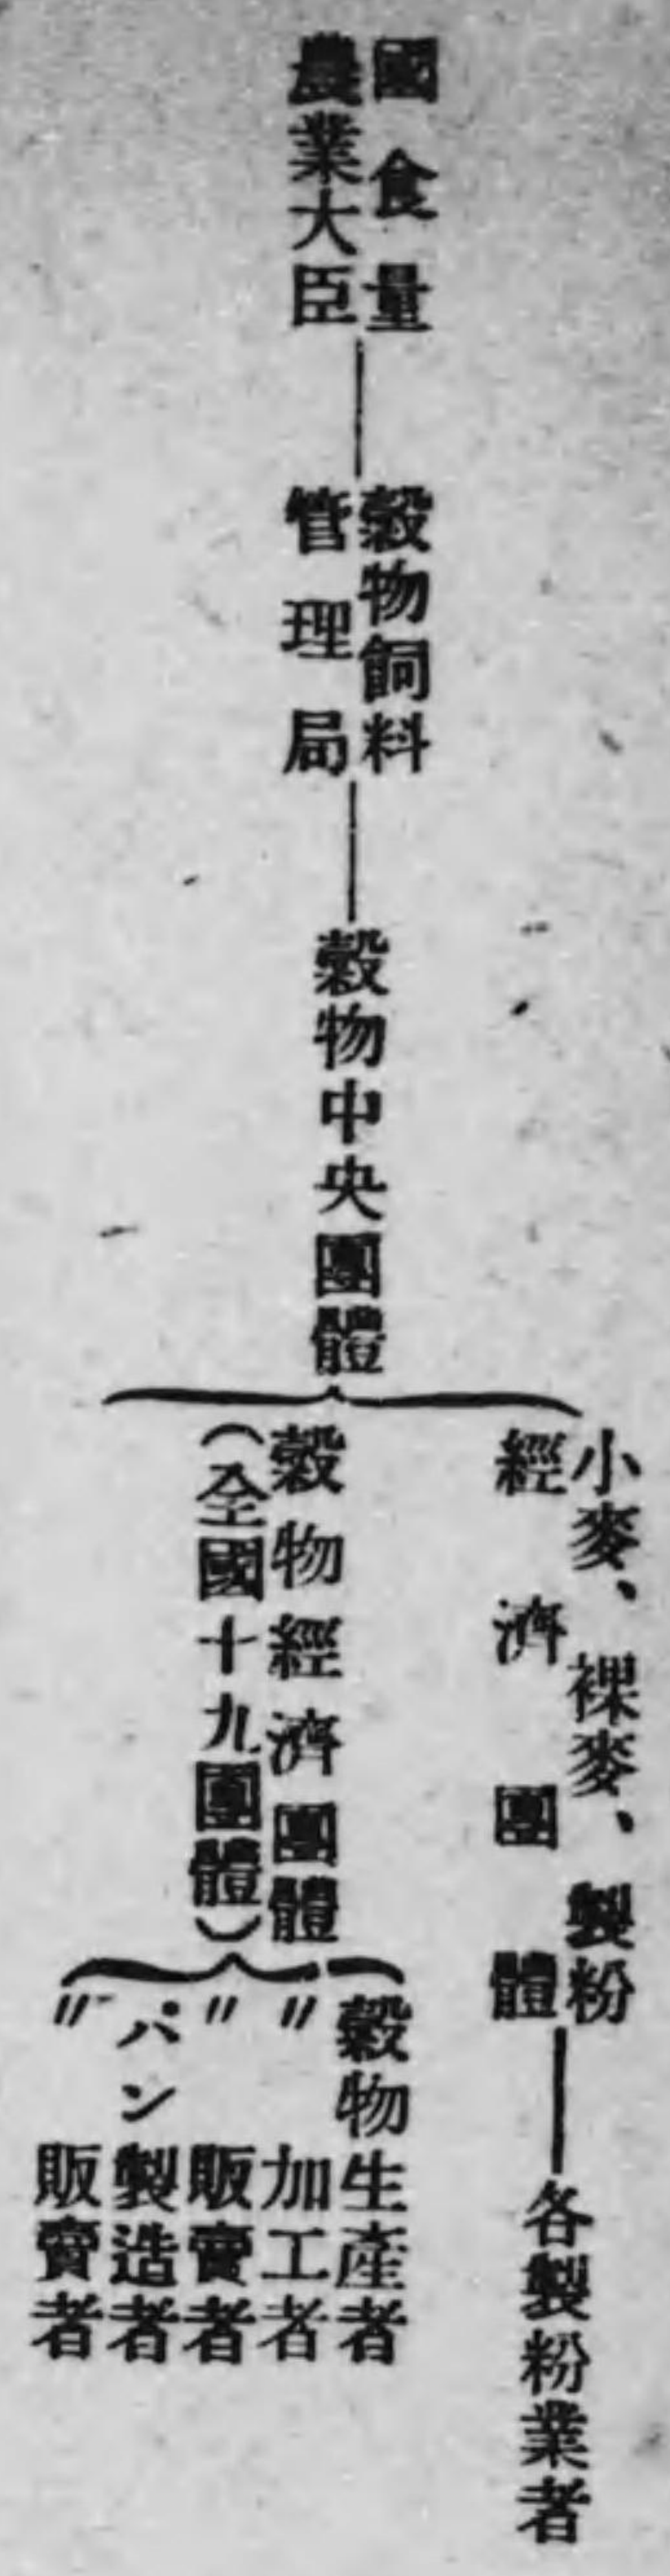 國食量
農業大臣
穀物飼料
管理局
穀物中央團體
小麥、裸麥、製粉
經濟團體
各製粉業者
穀物經濟團體
(全國十九團體)
穀物生產者
〃加工者
〃販賣者
パン製造者
〃販賣者